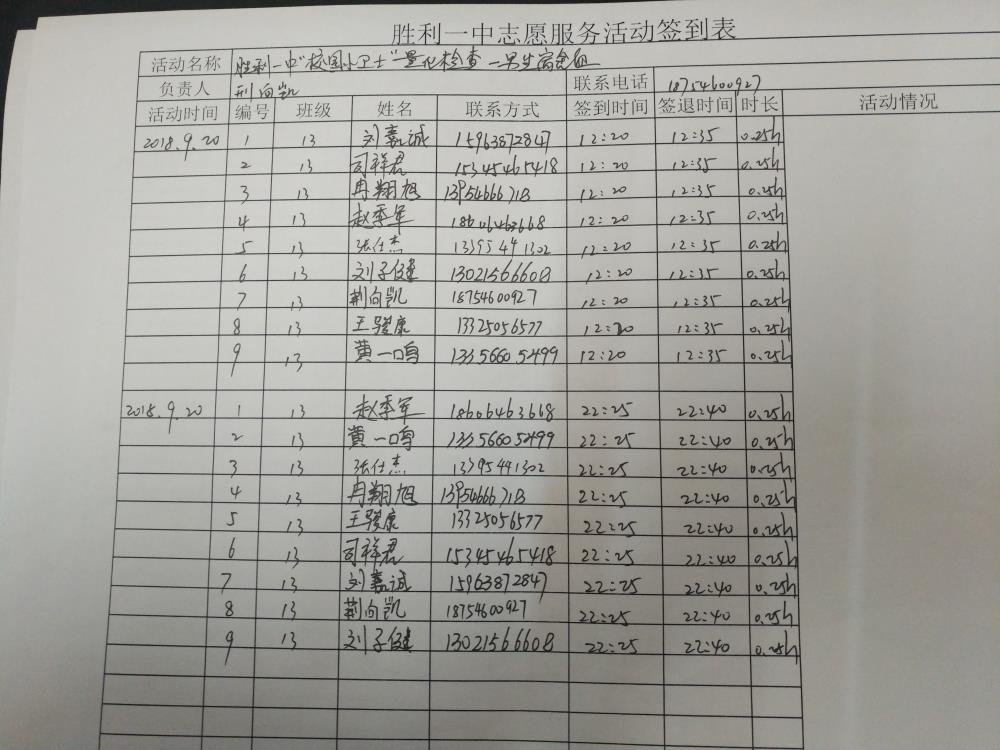 胜利一中志愿服务活动签到表
活动名称 胜利一中"校园小卫士"量化检查—男生宿舍组
负责人 荆向凯 联系电话 18754600927
活动时间 编号 班级 姓名 联系方式 签到时间 签退时间 时长 活动情况
2018.9.20 1 13 刘嘉诚 15963872847 12:20 12:35 0.25h
2 13 司祥君 15345465418 12:20 12:35 0.25h
3 13 冉翔旭 12:20 12:35 0.25h
4 13 赵季军 18606463668 12:20 12:35 0.25h
5 13 张仕杰 13395441302 12:20 12:35 0.25h
6 13 刘子健 13021566608 12:20 12:35 0.25h
7 13 荆向凯 18754600927 12:20 12:35 0.25h
8 13 王骏康 13325056577 12:20 12:35 0.25h
9 13 黄一鸣 13356605499 12:20 12:35 0.25h
2018.9.20 1 13 赵季军 18606463668 22:25 22:40 0.25h
2 13 黄一鸣 13356605499 22:25 22:40 0.25h
3 13 张仕杰 13395441302 22:25 22:40 0.25h
4 13 冉翔旭 22:25 22:40 0.25h
5 13 王骏康 13325056577 22:25 22:40 0.25h
6 13 司祥君 15345465418 22:25 22:40 0.25h
7 13 刘嘉诚 15963872847 22:25 22:40 0.25h
8 13 荆向凯 18754600927 22:25 22:40 0.25h
9 13 刘子健 13021566608 22:25 22:40 0.25h